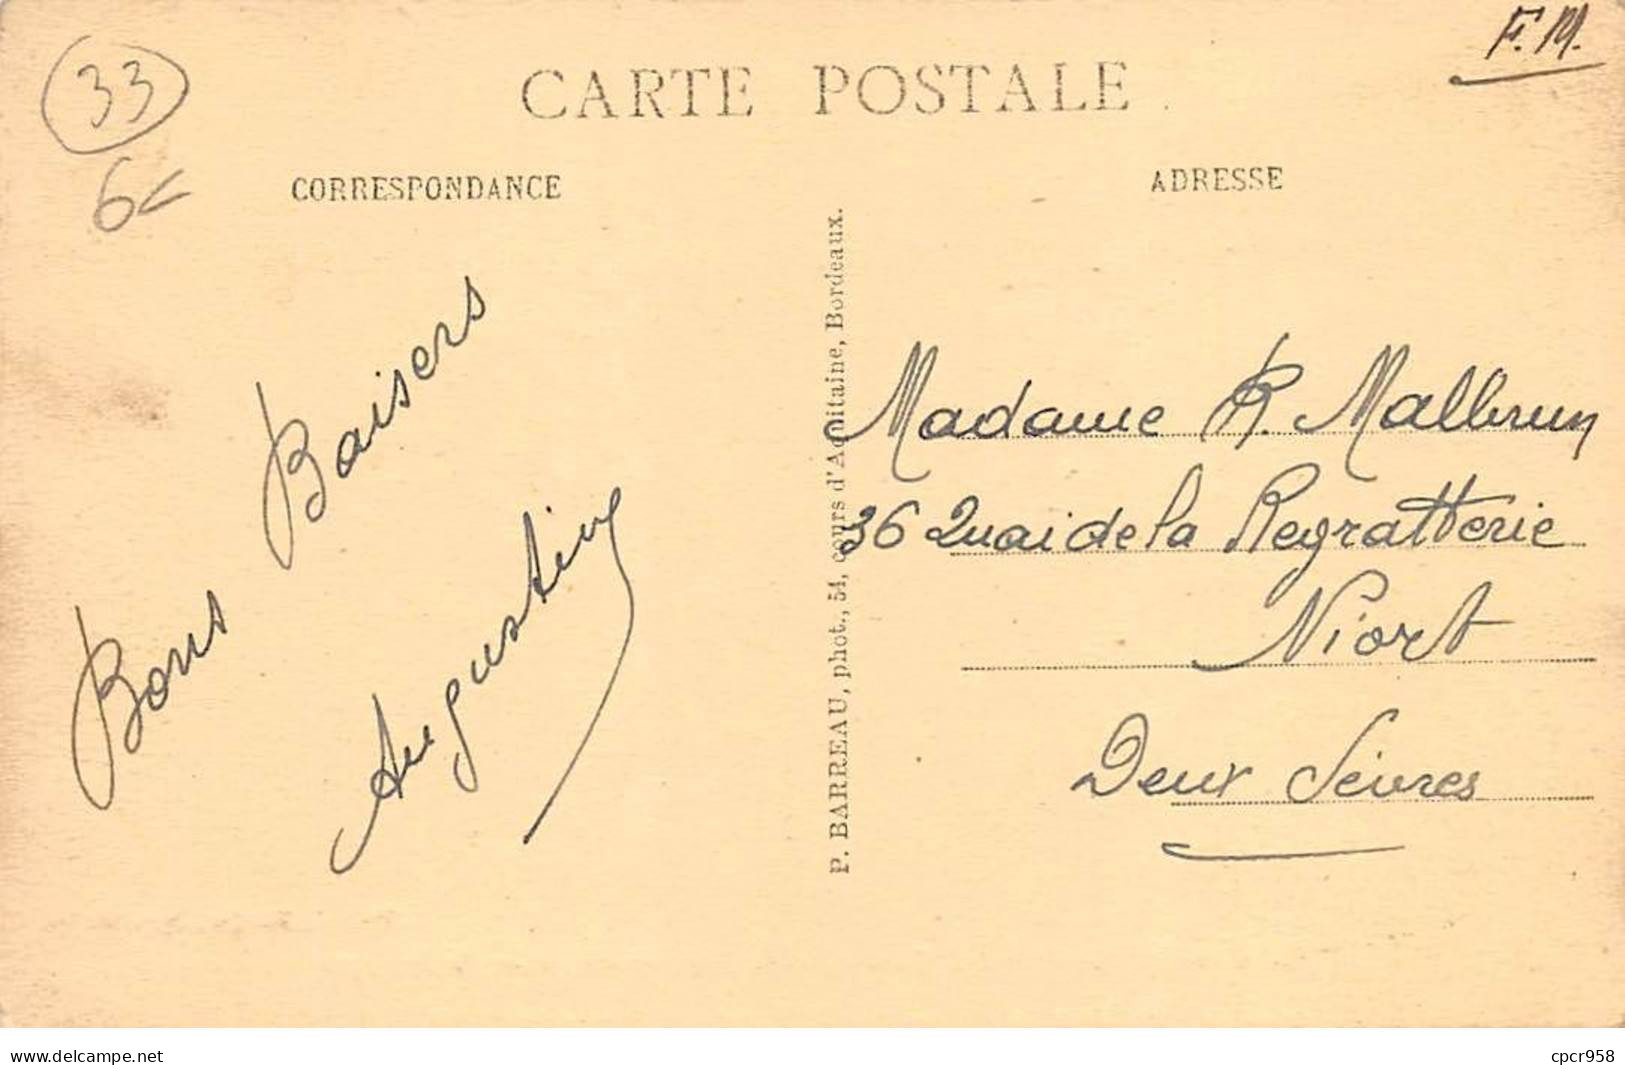 33
6€
F.M.
CARTE POSTALE
CORRESPONDANCE
ADRESSE
Bons Baisers
Augustine
P. BARREAU, phot., 54, cours d'Aquitaine, Bordeaux.
Madame R. Malbrun
36 Quai de la Regratterie
Niort
Deux Sèvres
www.delcampe.net
cpcr958